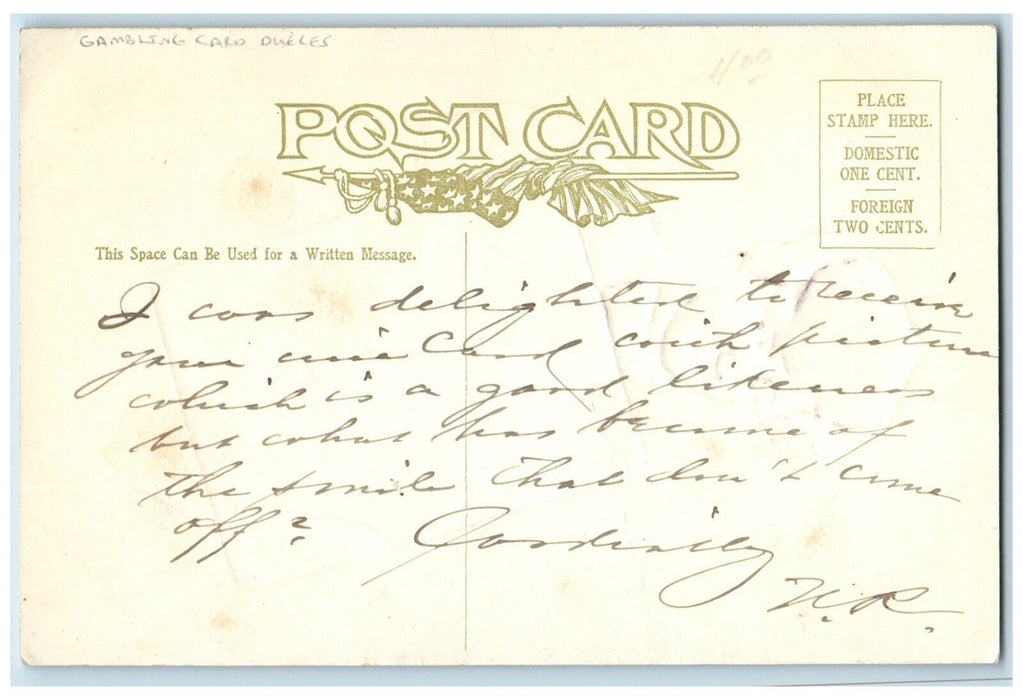 GAMBLING CARD DUELES
400
POST CARD
PLACE
STAMP HERE.
DOMESTIC
ONE CENT.
FOREIGN
TWO CENTS.
This Space Can Be Used for a Written Message.
I was delighted to receive
your Card with picture
which is a good likeness
but what has become of
the smile that don't come
off?
Cordially
R.